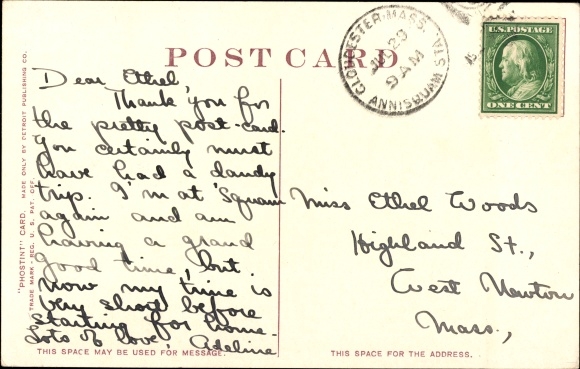 POST CARD
GLOUCESTER, MASS.
29
9 AM
ANNISQUAM STA.
U.S. POSTAGE
ONE CENT
Dear Ethel,
Thank you for
the pretty post-card.
You certainly must
have had a dandy
trip. I'm at 'Squam
again and am
having a grand
good time, but
now my time is
very short before
starting for home.
Lots of love, Adeline
Miss Ethel Woods
Highland St.,
West Newton
Mass.,
"PHOSTINT" CARD. MADE ONLY BY DETROIT PUBLISHING CO.
TRADE MARK - REG. U. S. PAT. OFF.
THIS SPACE MAY BE USED FOR MESSAGE.
THIS SPACE FOR THE ADDRESS.